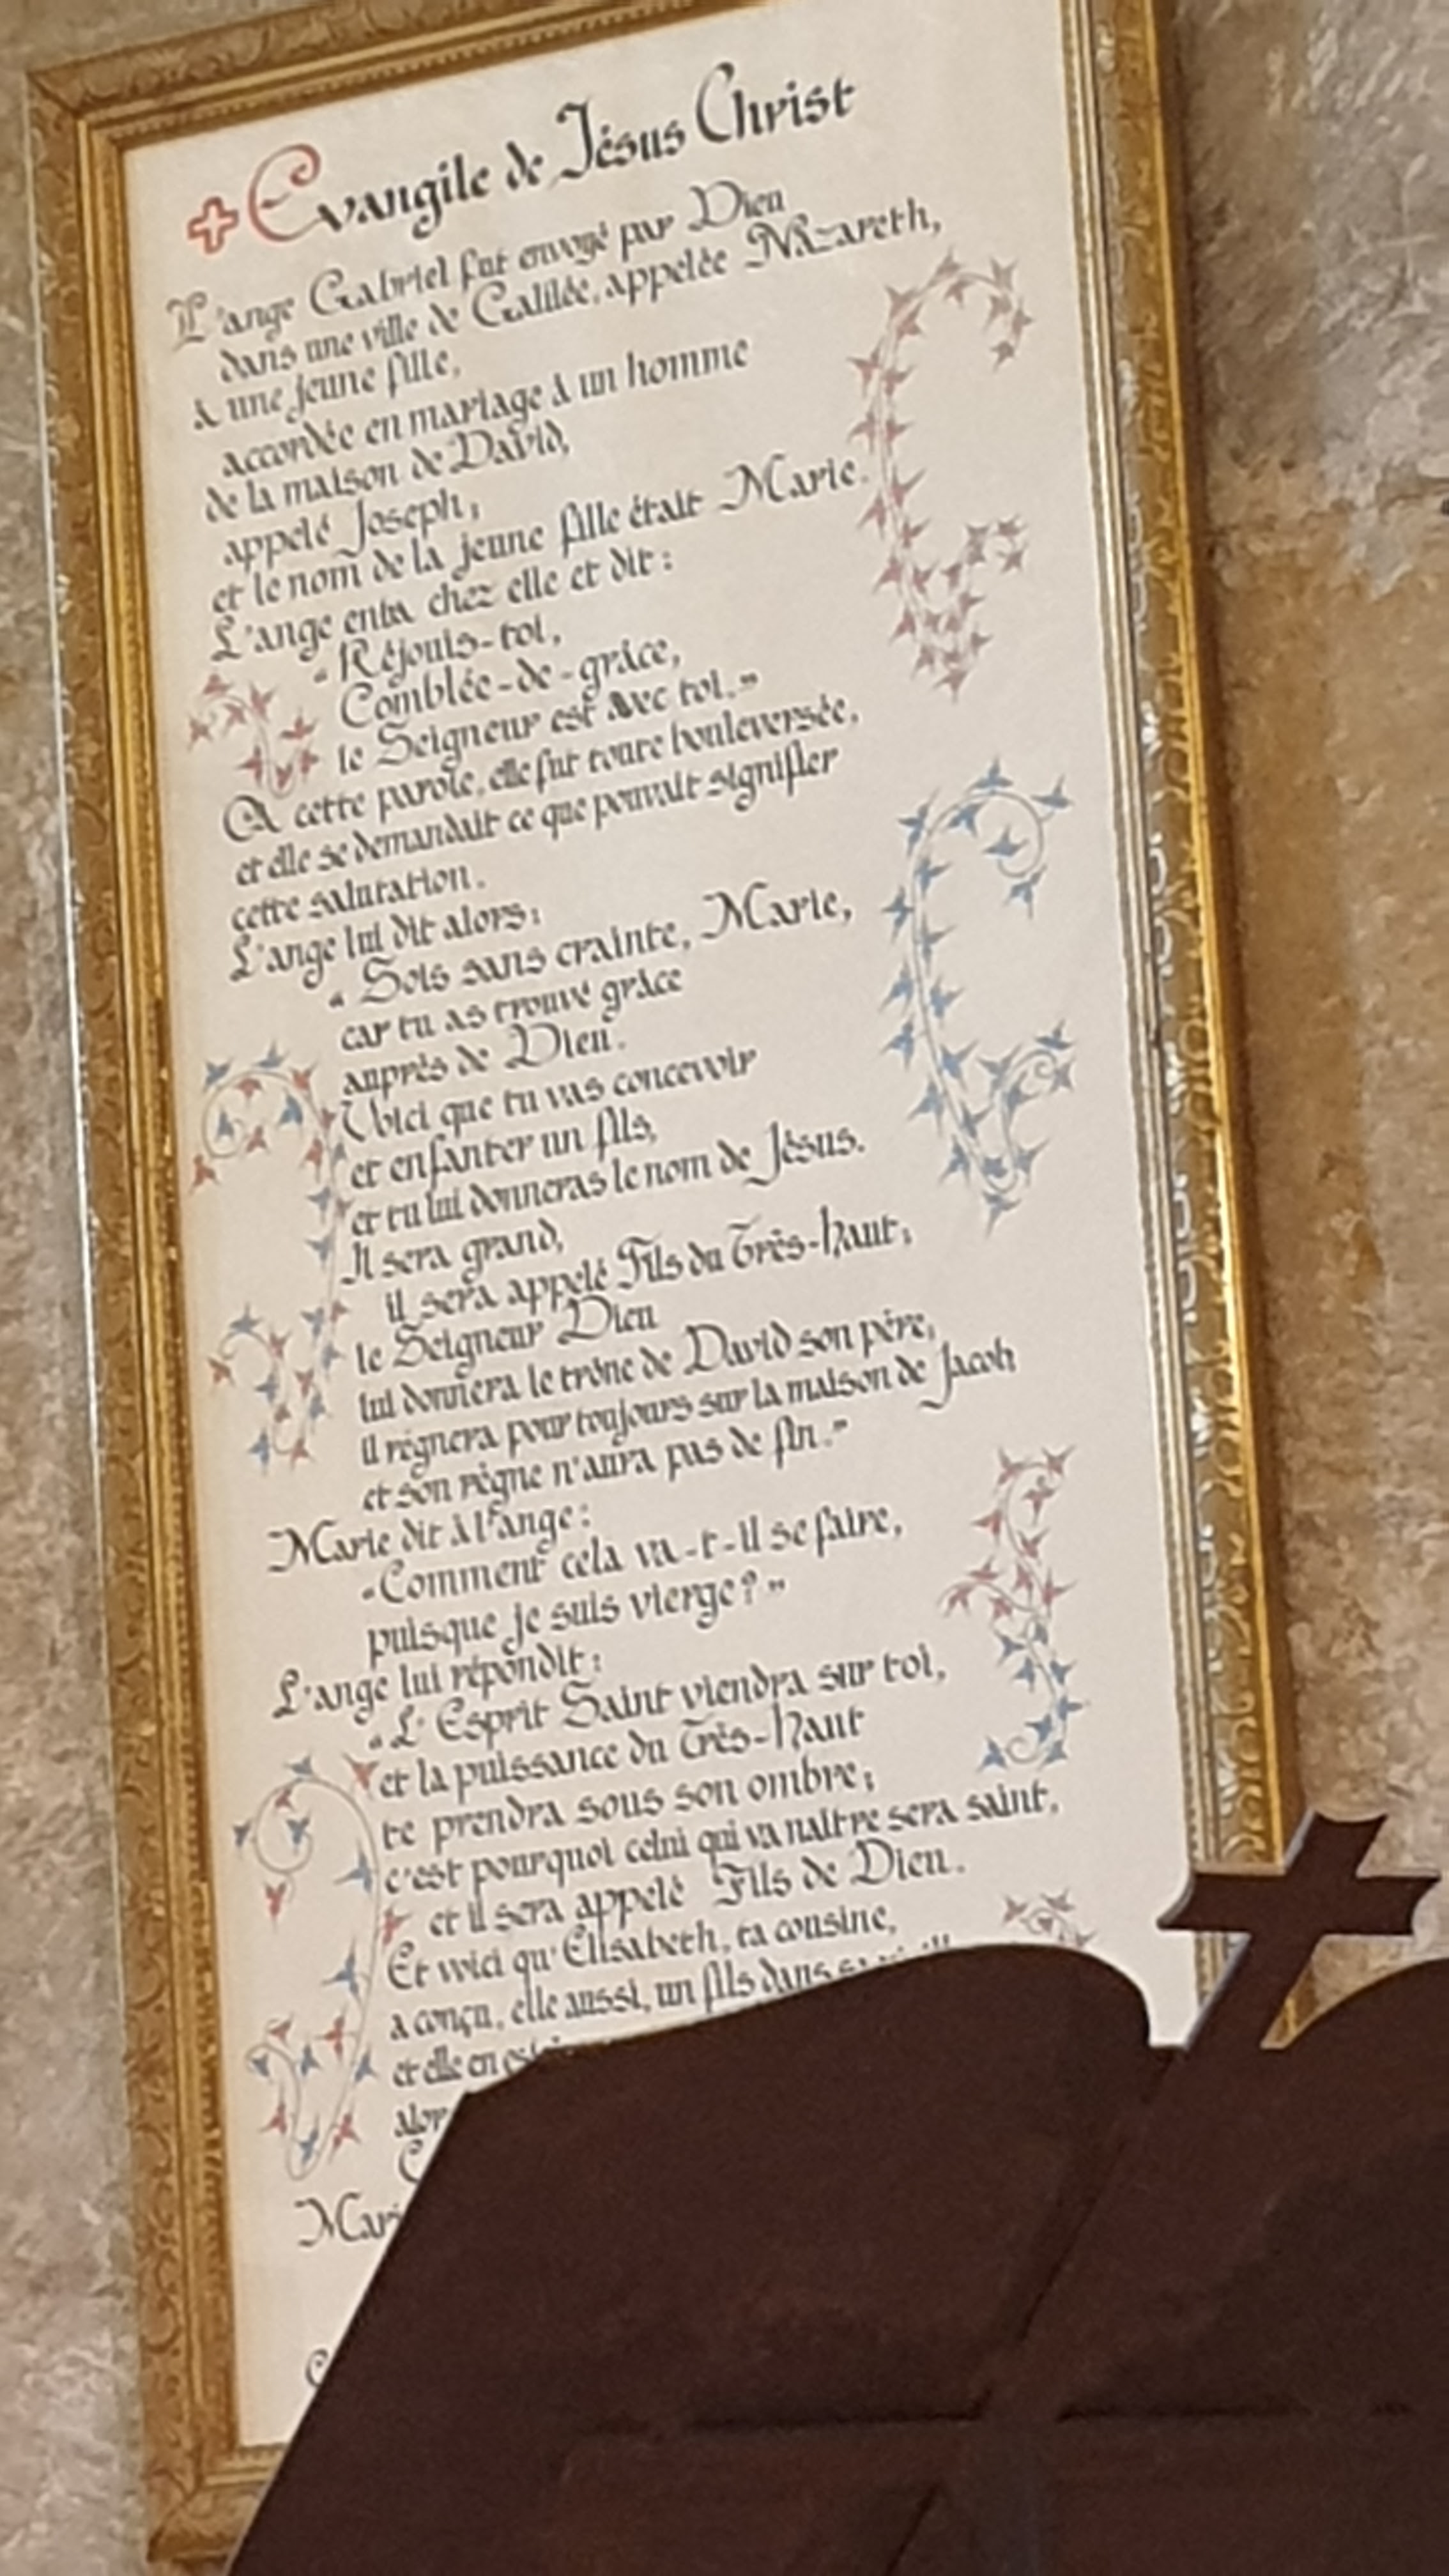 Evangile de Jésus Christ
L'ange Gabriel fut envoyé par Dieu
dans une ville de Galilée, appelée Nazareth,
à une jeune fille,
accordée en mariage à un homme
de la maison de David,
appelé Joseph;
et le nom de la jeune fille était Marie.
L'ange entra chez elle et dit:
« Réjouis-toi,
Comblée-de-grâce,
le Seigneur est avec toi. »
A cette parole, elle fut toute bouleversée,
et elle se demandait ce que pouvait signifier
cette salutation.
L'ange lui dit alors:
« Sois sans crainte, Marie,
car tu as trouvé grâce
auprès de Dieu.
Voici que tu vas concevoir
et enfanter un fils,
et tu lui donneras le nom de Jésus.
Il sera grand,
il sera appelé Fils du Très-haut;
le Seigneur Dieu
lui donnera le trône de David son père;
il règnera pour toujours sur la maison de Jacob
et son règne n'aura pas de fin. »
Marie dit à l'ange:
« Comment cela va-t-il se faire,
puisque je suis vierge? »
L'ange lui répondit:
« L'Esprit Saint viendra sur toi,
et la puissance du Très-haut
te prendra sous son ombre;
c'est pourquoi celui qui va naître sera saint,
et il sera appelé Fils de Dieu.
Et voici qu'Elisabeth, ta cousine,
a conçu, elle aussi, un fils dans
et elle en